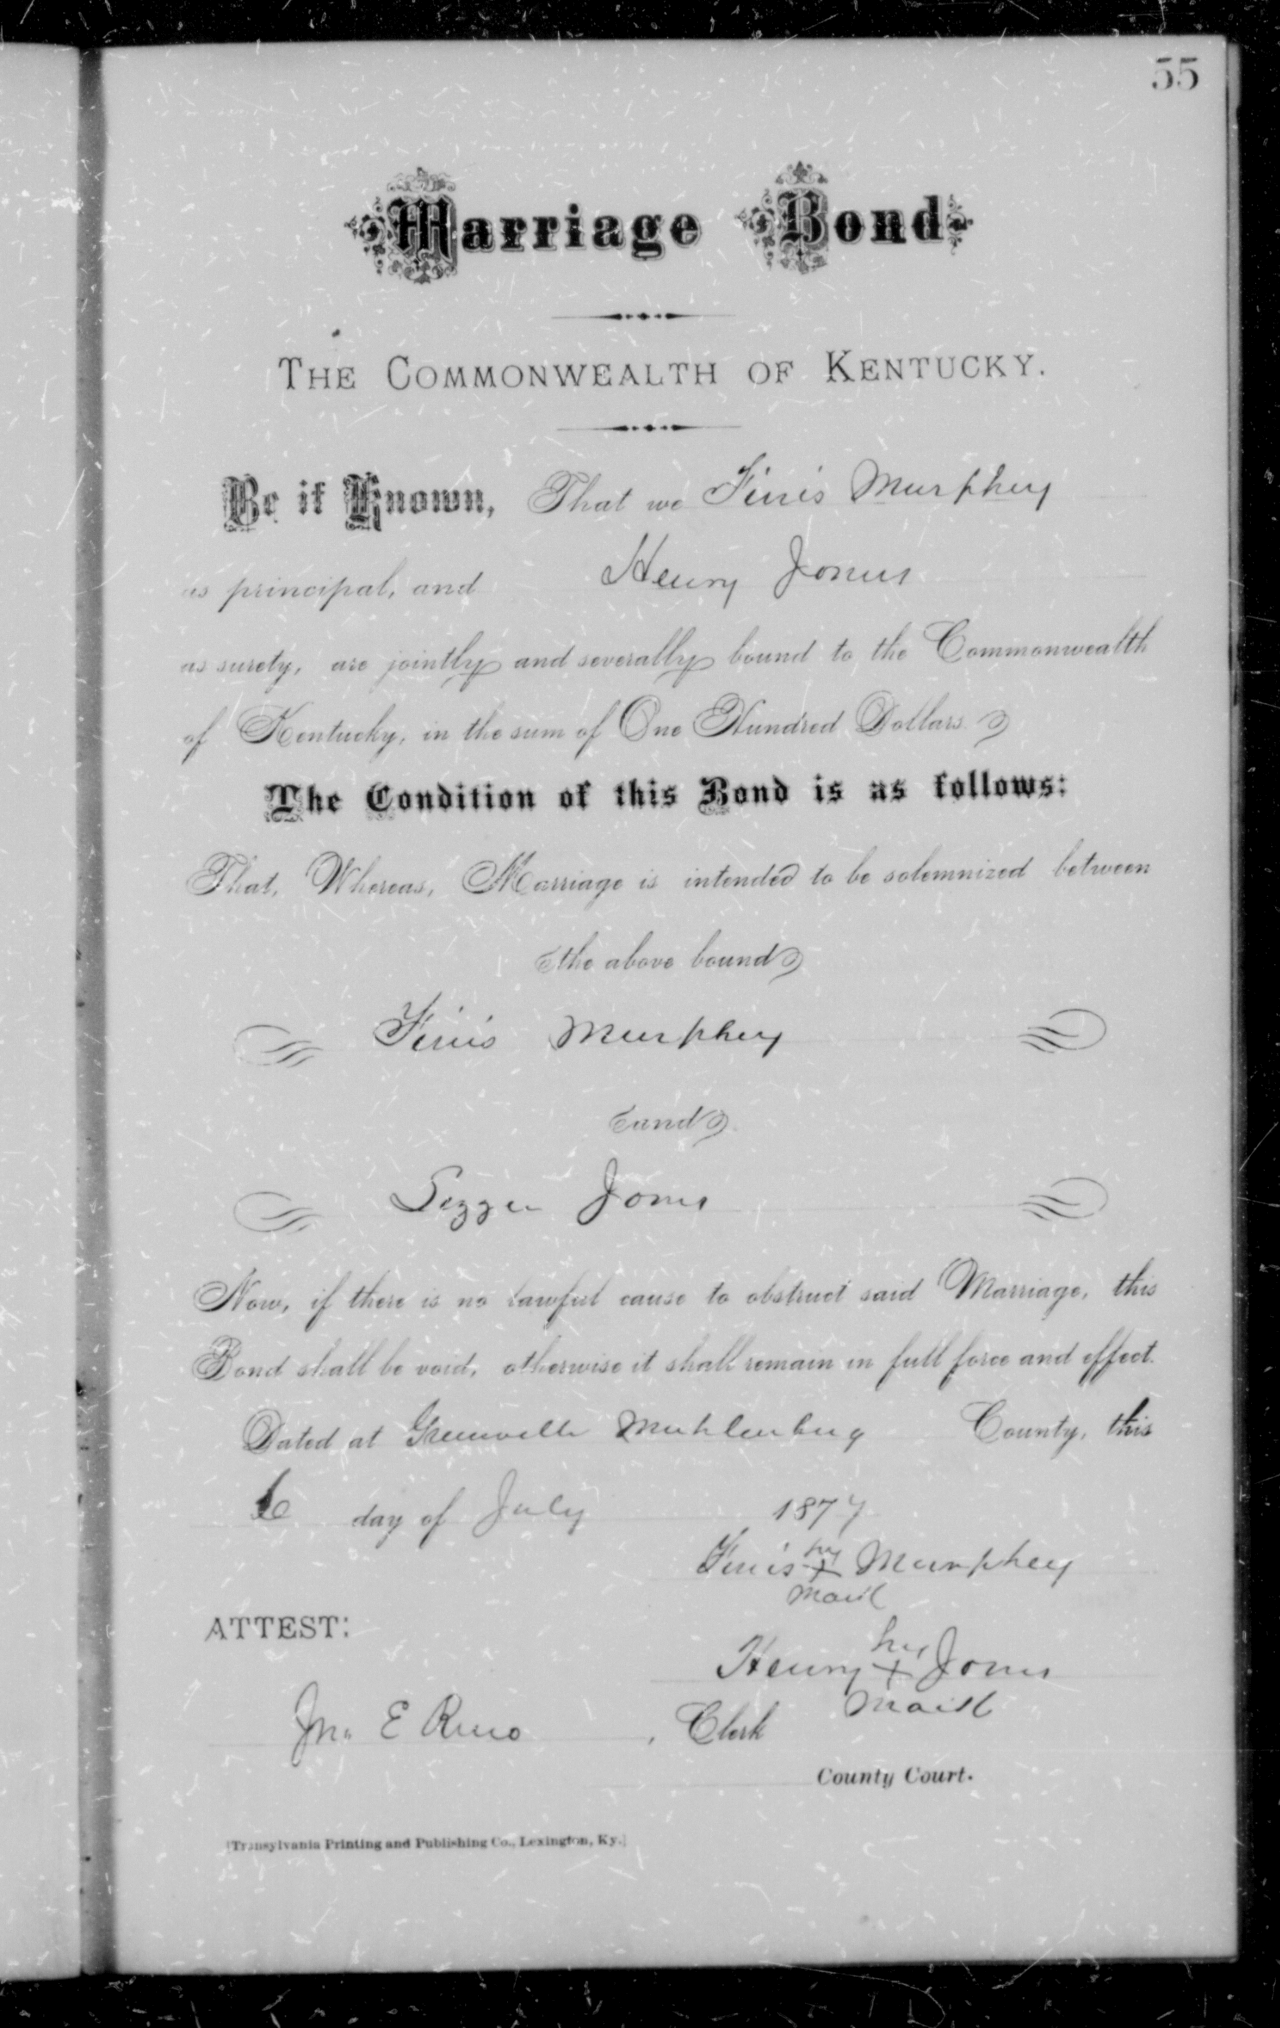 55
Marriage Bond
THE COMMONWEALTH OF KENTUCKY.
Be it Known, That we Finis Murphey
as principal, and Henry Jones
as surety, are jointly and severally bound to the Commonwealth
of Kentucky, in the sum of One Hundred Dollars.
The Condition of this Bond is as follows:
That, Whereas, Marriage is intended to be solemnized between
the above bound
Finis Murphey
and
Jones
Now, if there is no lawful cause to obstruct said Marriage, this
Bond shall be void, otherwise it shall remain in full force and effect.
Dated at Greenville Muhlenburg County, this
6 day of July 1877
his
Finis X Murphey
Mark
ATTEST:
his
Henry X Jones
Mark
Jno E Reno, Clerk
County Court.
[Transylvania Printing and Publishing Co., Lexington, Ky.]